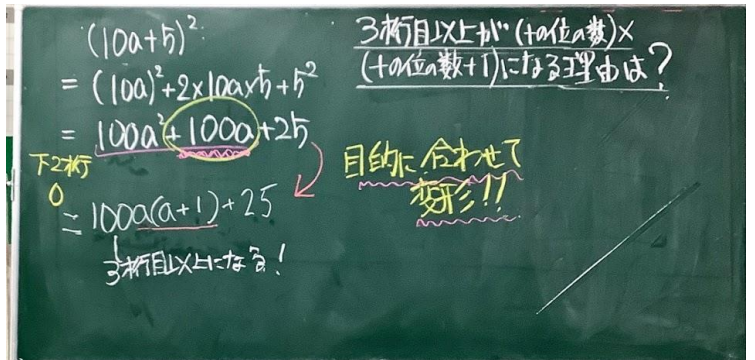 (10a+5)²
= (10a)²+2×10a×5+5²
= 100a²+100a+25
下2桁
0
= 100a(a+1)+25
3桁目以上になる!
3桁目以上が(十の位の数)×
(十の位の数+1)になる理由は?
目的に合わせて
変形!!